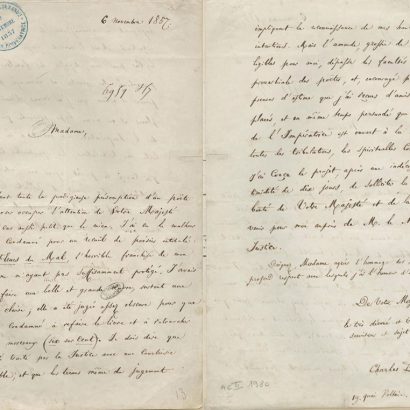 6 novembre 1857.
Madame,
toute la prodigieuse présomption d'un poëte
occuper l'attention de Votre Majesté
cas aussi petit que le mien. J'ai eu le malheur
condamné pour un recueil de poésies intitulé:
Fleurs du Mal, l'horrible franchise de mon
ne m'ayant pas suffisamment protégé. J'avais
faire une belle et grande œuvre, surtout une
claire; elle a été jugée assez obscure pour que
condamné à refaire le livre et à retrancher
morceaux (six sur cent). Je dois dire que
traité par la Justice avec une courtoisie
et que les termes même du jugement
13
impliquent la reconnaissance de mes hautes
intentions. Mais l'amende, grossie de
pour moi, dépasse les facultés
proverbiale des poëtes, et, encouragé par
preuves d'estime que j'ai reçues d'amis
placés, et en même temps persuadé que
de l'Impératrice est ouvert à la
toutes les tribulations, les spirituelles comme
j'ai conçu le projet, après une indécision
timidité de dix jours, de solliciter la
bonté de Votre Majesté et de la
pour moi auprès de M. le Ministre
Justice.
Daignez, Madame, agréer l'hommage des
profond respect avec lesquels j'ai l'honneur d'être
De Votre Majesté
le très dévoué et très
serviteur et sujet
Charles
19, quai Voltaire.